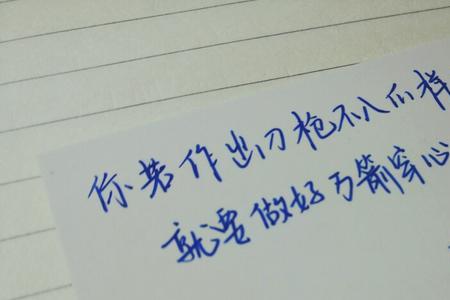 你若作出刀枪不入的样
就要做好万箭穿心